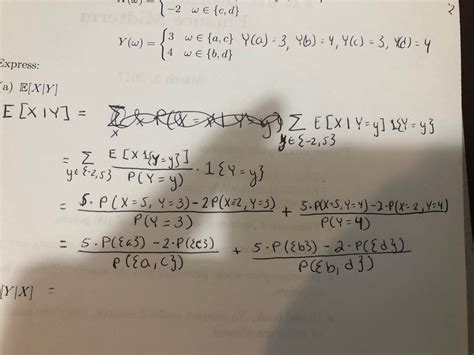 −2 ω ∈ {c, d}
Y(ω) = { 3 ω ∈ {a, c} Y(a) = 3, Y(b) = 4, Y(c) = 3, Y(d) = 4
4 ω ∈ {b, d}
Express:
(a) E[X|Y]
E[X|Y] = Σ y∈{-2,5} E[X|Y=y] 1{Y=y}
= Σ y∈{-2,5} E[X1{Y=y}] / P(Y=y) · 1{Y=y}
= 5·P(X=5, Y=3) − 2P(X=-2, Y=3) / P(Y=3) + 5·P(X=5, Y=4) − 2·P(X=-2, Y=4) / P(Y=4)
= 5·P({a}) − 2·P({c}) / P({a, c}) + 5·P({b}) − 2·P({d}) / P({b, d})
[Y|X] =